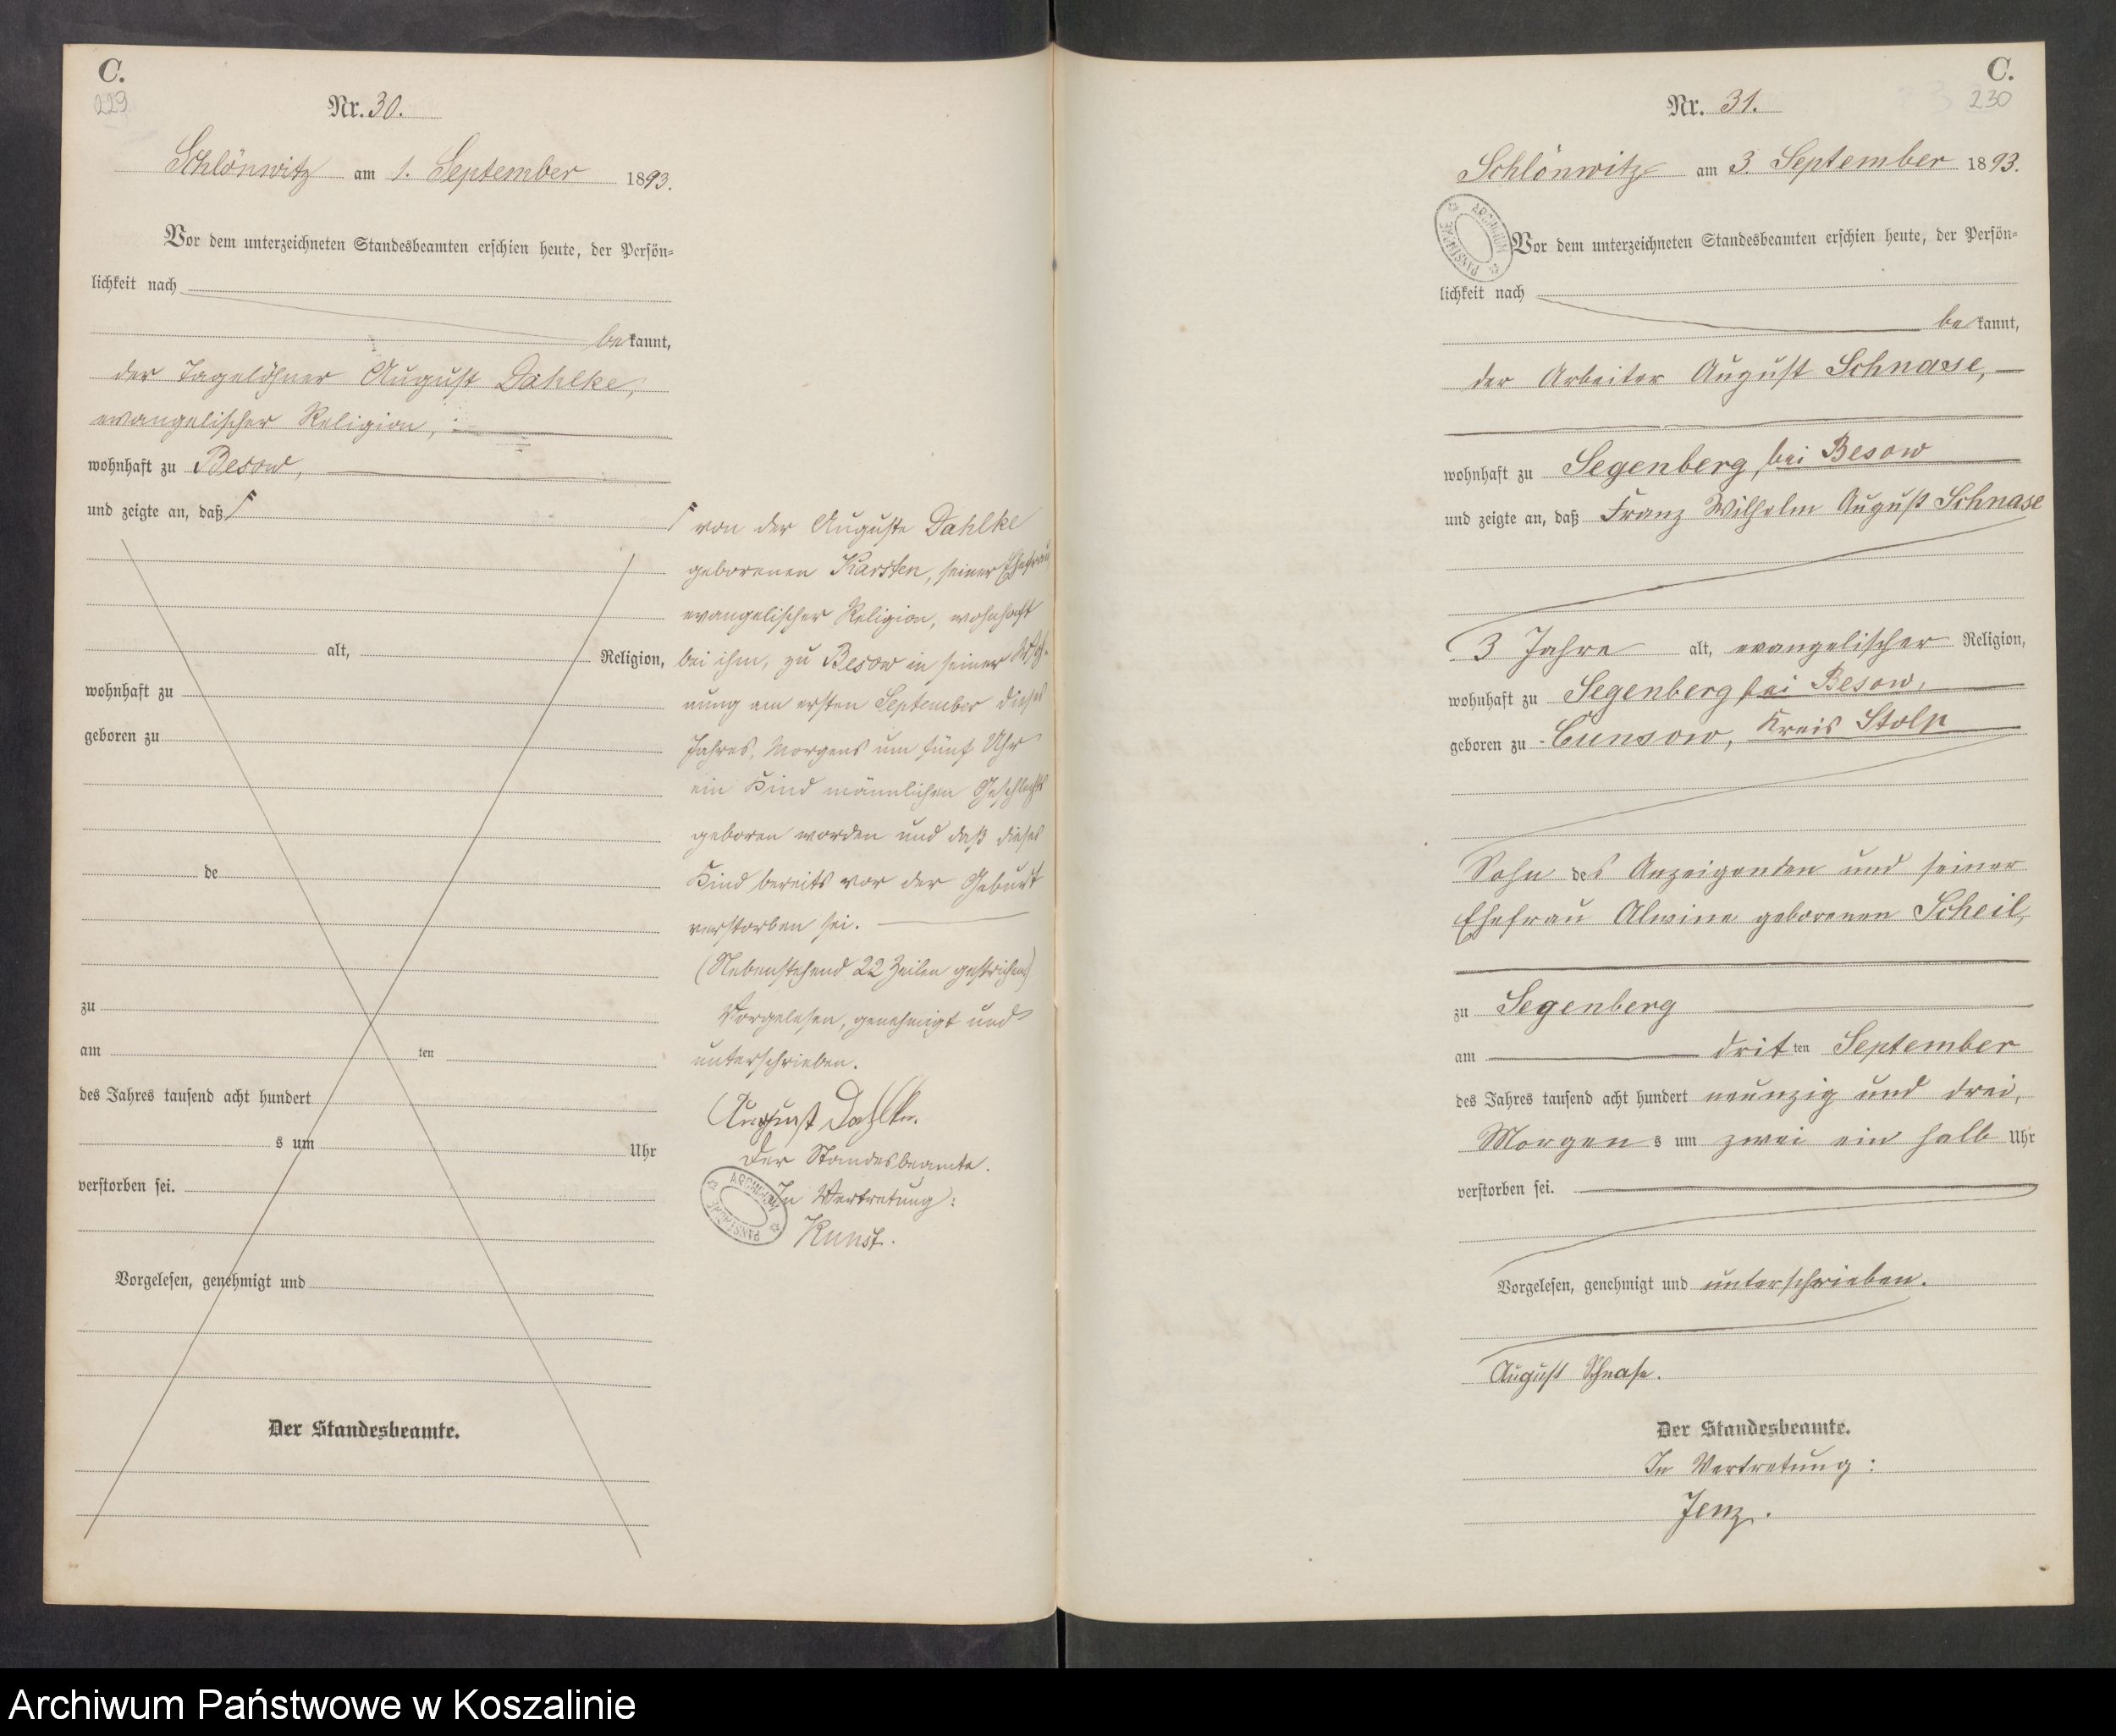 C.
229
Nr. 30.
Schlönwitz am 1. September 1893.
Vor dem unterzeichneten Standesbeamten erschien heute, der Persön=
lichkeit nach
bekannt,
der Tagelöhner August Dahlke,
evangelischer Religion,
wohnhaft zu Besow,
und zeigte an, daß
alt, Religion,
wohnhaft zu
geboren zu
de
zu
am ten
des Jahres tausend acht hundert
s um Uhr
verstorben sei.
Vorgelesen, genehmigt und
Der Standesbeamte.
von der Auguste Dahlke
geborenen Karsten, seiner Ehefrau
evangelischer Religion, wohnhaft
bei ihm, zu Besow in seiner Woh-
nung am ersten September dieses
Jahres, Morgens um fünf Uhr
ein Kind männlichen Geschlechts
geboren worden und daß dieses
Kind bereits vor der Geburt
verstorben sei.
(Nebenstehend 22 Zeilen gestrichen)
Vorgelesen, genehmigt und
unterschrieben.
August Dahlke.
Der Standesbeamte.
In Vertretung:
Kunst.
ARCHIWUM PAŃSTWOWE
C.
230
Nr. 31.
Schlönwitz am 3. September 1893.
ARCHIWUM PAŃSTWOWE
Vor dem unterzeichneten Standesbeamten erschien heute, der Persön=
lichkeit nach
bekannt,
der Arbeiter August Schnase,
wohnhaft zu Segenberg, bei Besow
und zeigte an, daß Franz Wilhelm August Schnase
3 Jahre alt, evangelischer Religion,
wohnhaft zu Segenberg bei Besow,
geboren zu Cunsow, Kreis Stolp
Sohn des Anzeigenden und seiner
Ehefrau Alwine geborenen Scheil,
zu Segenberg
am dritten September
des Jahres tausend acht hundert neunzig und drei,
Morgens um zwei ein halb Uhr
verstorben sei.
Vorgelesen, genehmigt und unterschrieben.
August Schnase.
Der Standesbeamte.
In Vertretung:
Jenz.
Archiwum Państwowe w Koszalinie